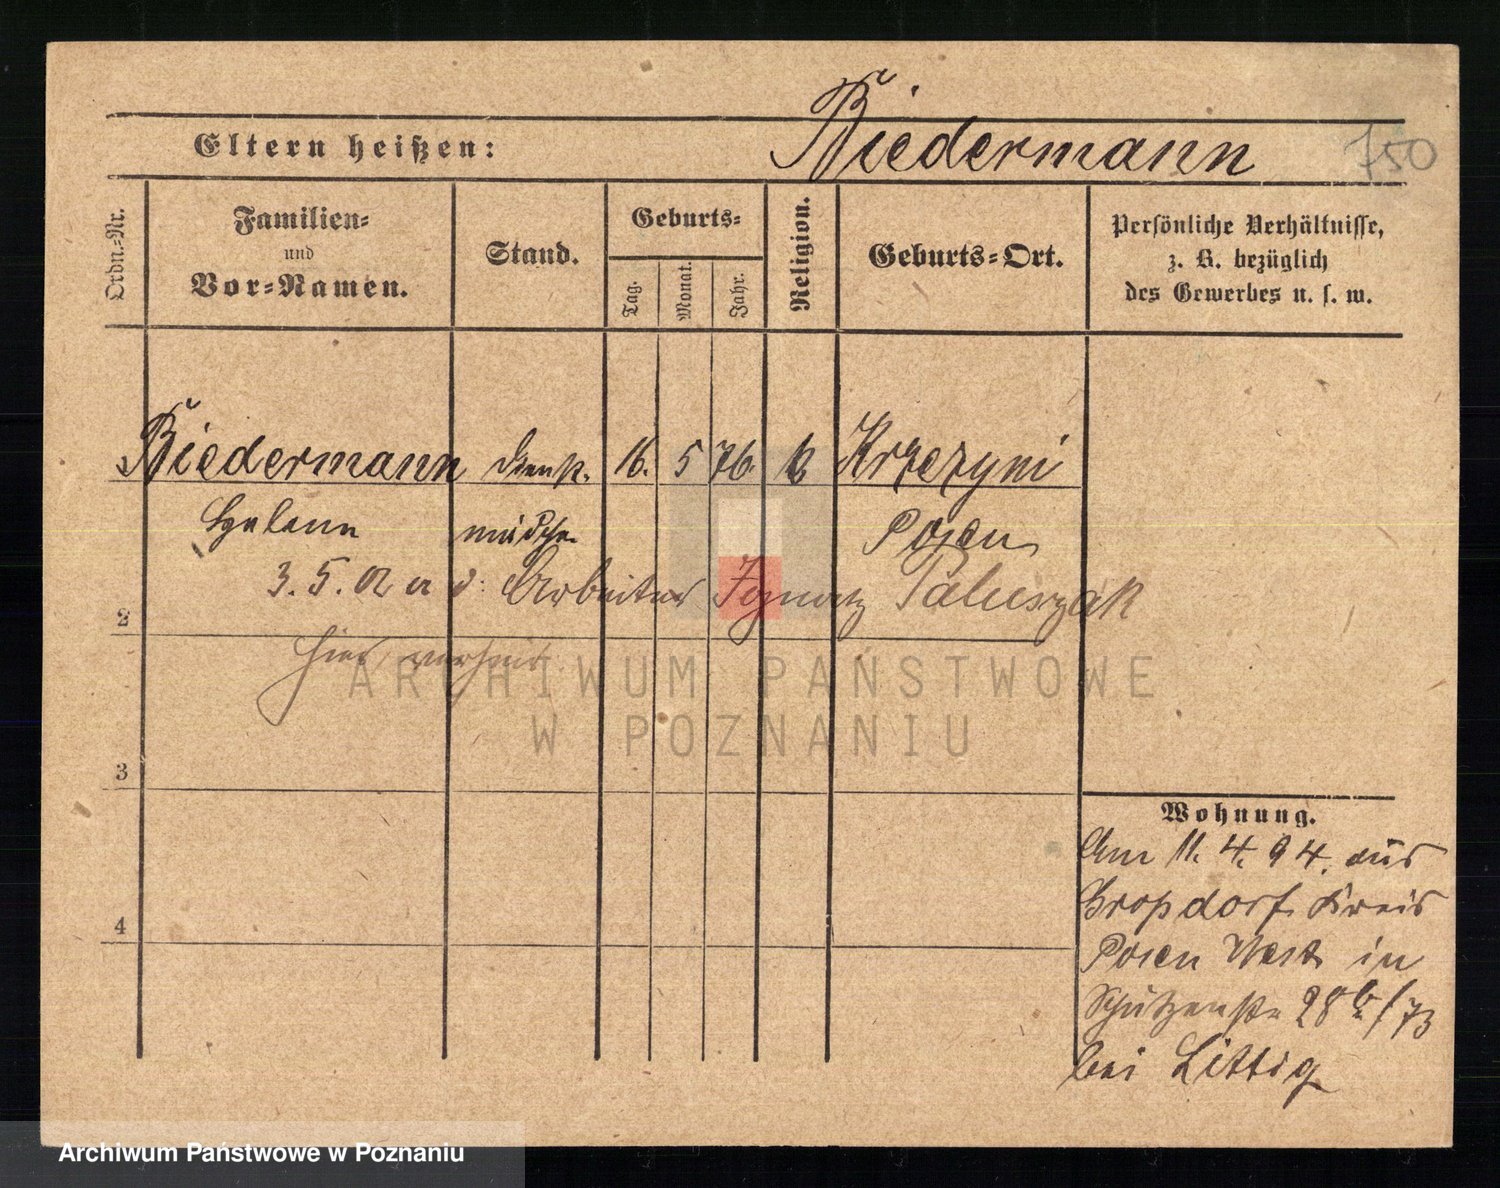 Biedermann 750
Eltern heißen:
Ordn.-Nr.
Familien-
und
Vor-Namen.
Stand.
Geburts-
Tag.
Monat.
Jahr.
Religion.
Geburts-Ort.
Persönliche Verhältnisse,
z. B. bezüglich
des Gewerbes u. s. w.
1 Biedermann Dienst- 16. 5 76. k Krzezyni
Helene mädche Posen
3. 5. d: Arbeiter Ignatz Paluszak
2
hier verheir.
ARCHIWUM PAŃSTWOWE
W POZNANIU
3
4
Wohnung.
Am 11. 4. 94. aus
Gropdorf Kreis
Posen West in
Schützenstr 28b/73
bei Littig
Archiwum Państwowe w Poznaniu